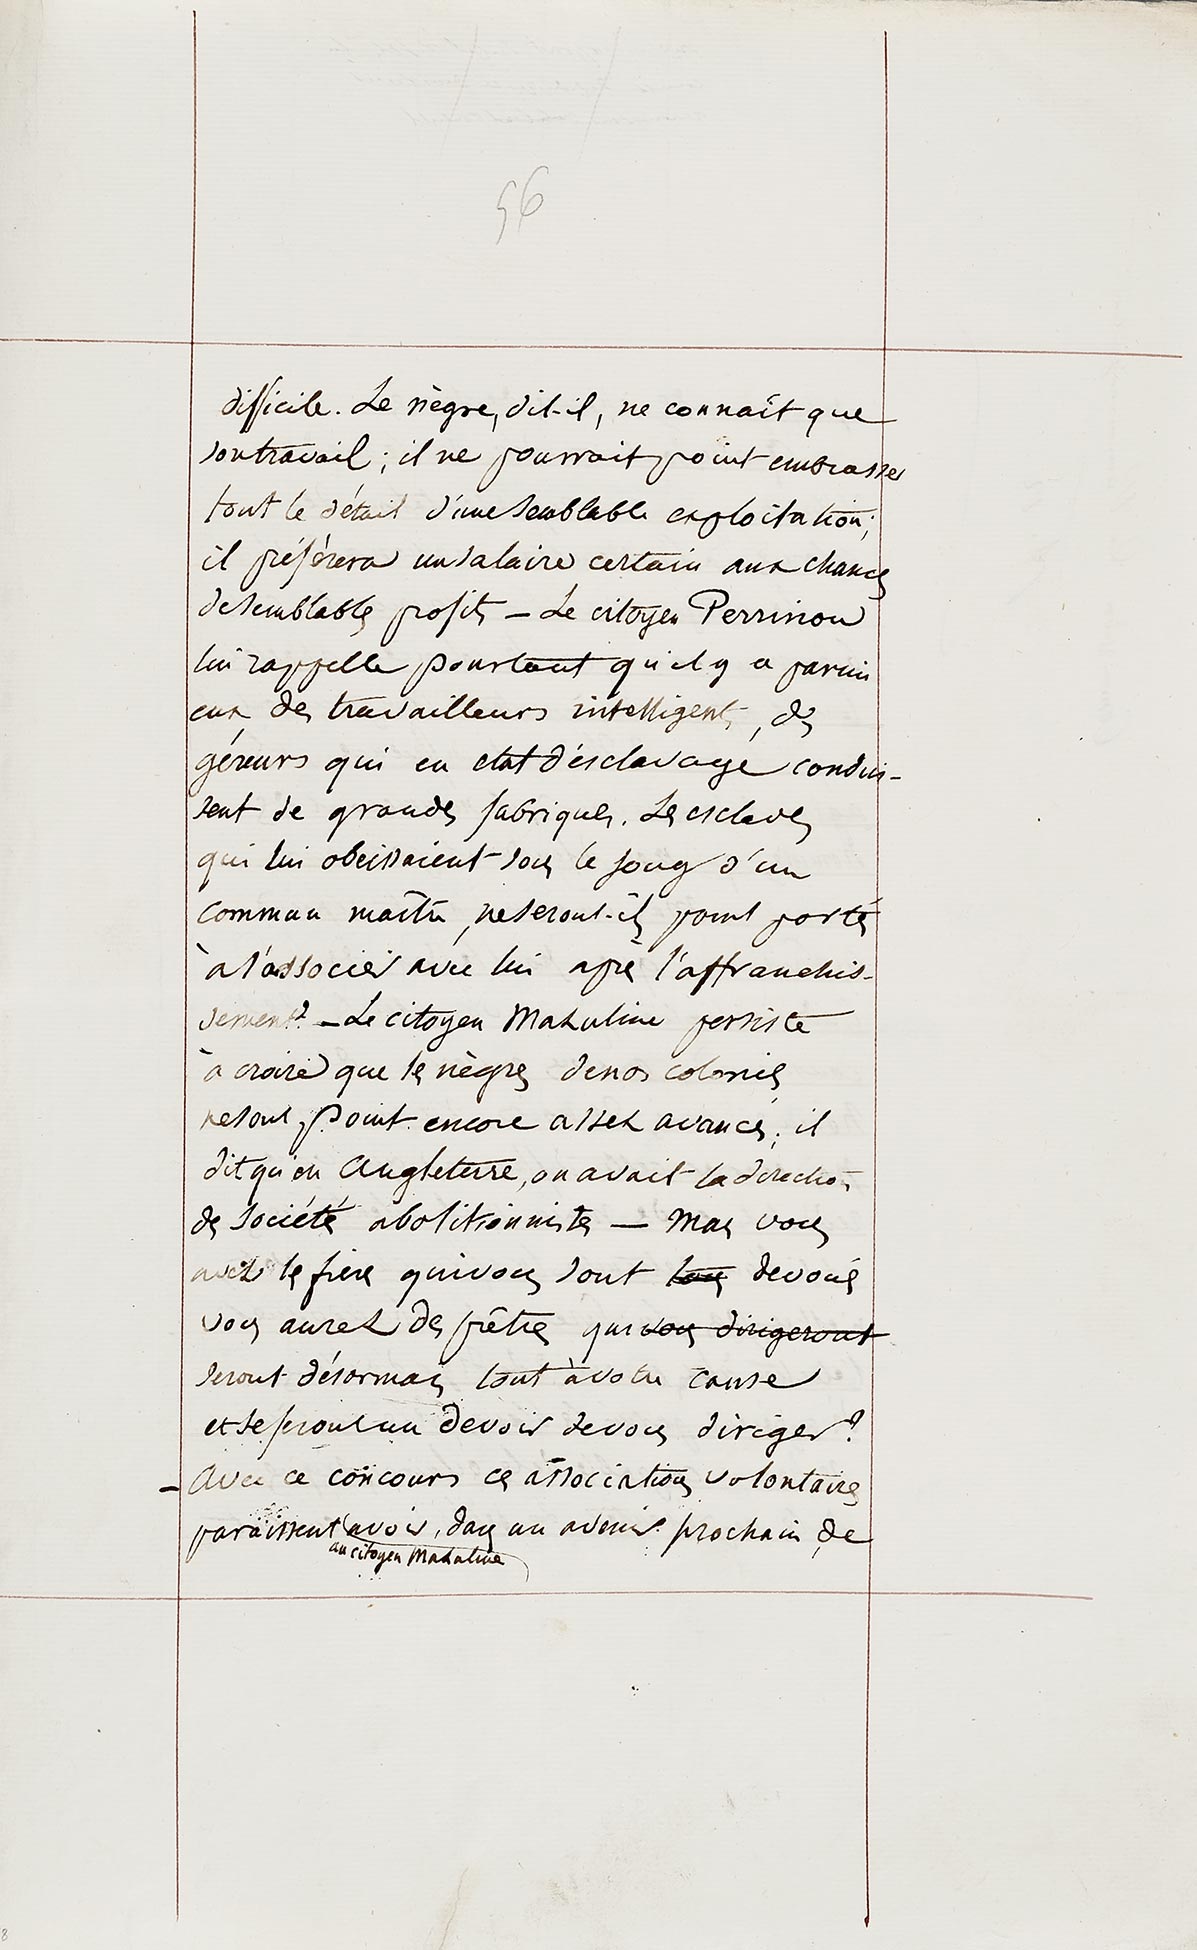 56
difficile. Le nègre, dit-il, ne connaît que
son travail ; il ne pourrait point embrasser
tout le détail d'une semblable exploitation ;
il préférera un salaire certain aux chances
de semblables profits — Le citoyen Perrinon
lui rappelle pourtant qu'il y a parmi
eux des travailleurs intelligents, des
géreurs qui en etat d'esclavage condui-
sent de grandes fabriques. Les esclaves
qui lui obeissaient sous le joug d'un
commun maître, ne seront-ils point portés
à s'associer avec lui après l'affranchis-
sement ? — Le citoyen Mahuline persiste
à croire que les nègres de nos colonies
ne sont point encore assez avancés ; il
dit qu'en Angleterre, on avait la direction
de société abolitionnistes — Mais vous
avez les frères qui vous sont tous devoués
vous aurez des prêtres qui vous dirigeront
seront désormais tout à votre cause
et se feront un devoir de vous diriger ?
— Avec ce concours ces associations volontaires
paraissent avoir, dans un avenir prochain, de
au citoyen Mahuline
8